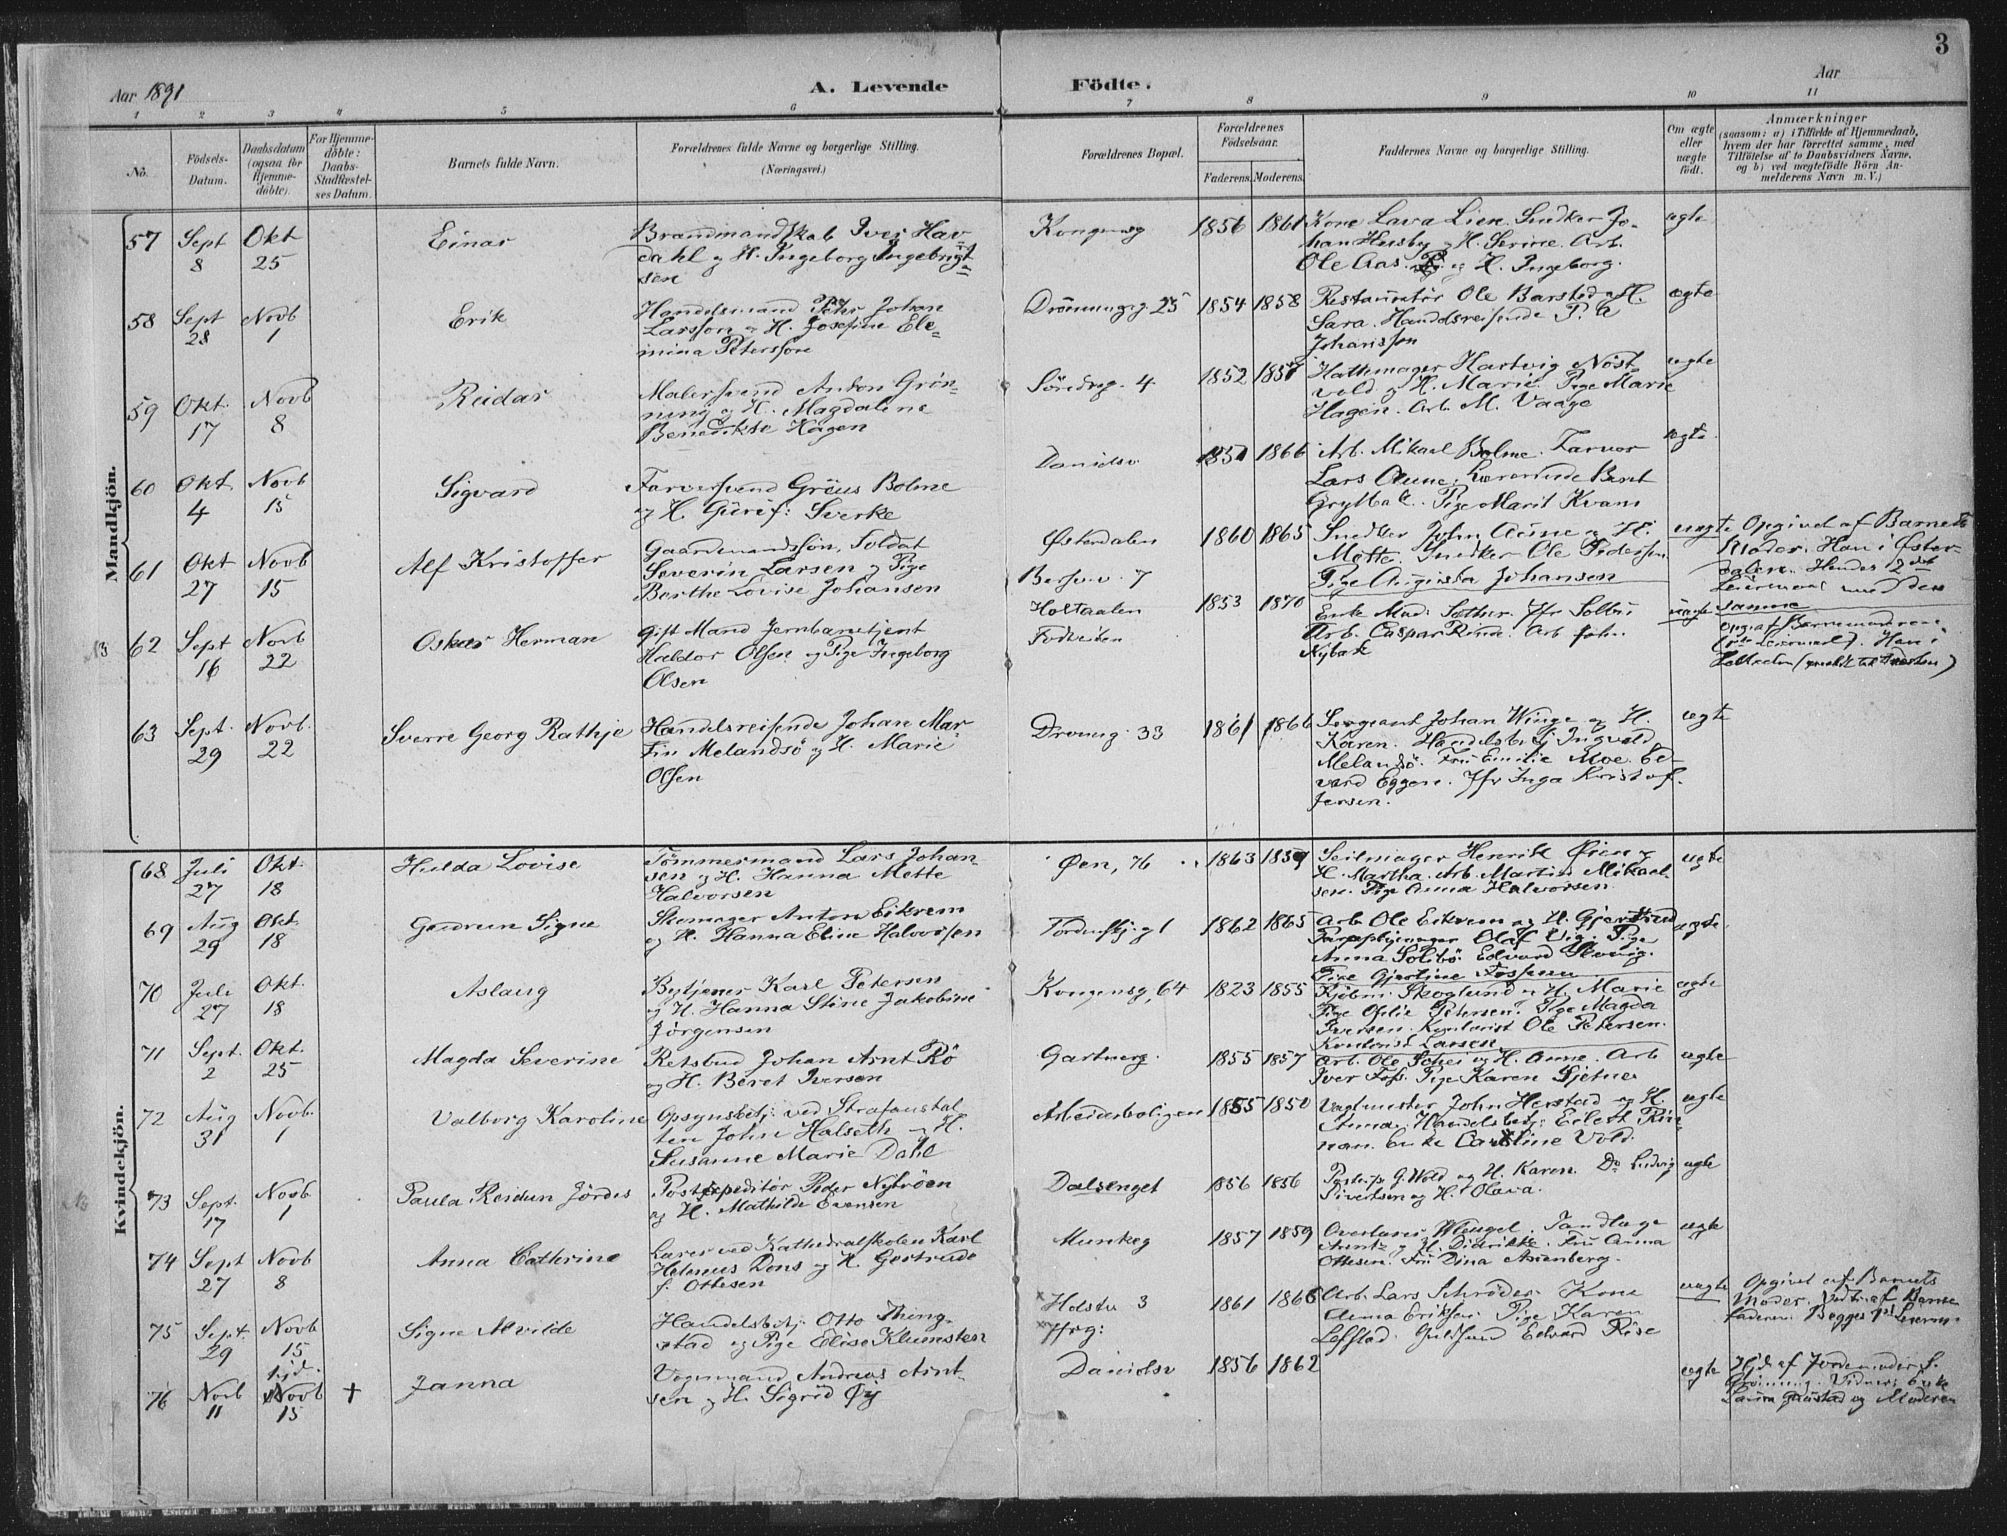 3
Aar 1891
A. Levende Födte.
Aar
1 2 3 4 5 6 7 8 9 10 11
No.
Födsels-
Datum.
Daabsdatum
(ogsaa for
Hjemme-
döbte).
For Hjemme-
döbte:
Daabs-
Stadfæstel-
ses Datum.
Barnets fulde Navn.
Forældrenes fulde Navne og borgerlige Stilling.
(Næringsvei.)
Forældrenes Bopæl.
Forældrenes
Födselsaar.
Faderens. Moderens.
Faddernes Navne og borgerlige Stilling.
Om ægte
eller
uægte
födt.
Anmærkninger
(saasom: a) i Tilfælde af Hjemmedaab,
hvem der har forrettet samme, med
Tilföielse af to Daabsvidners Navne,
og b) ved uægtefödte Börn An-
melderens Navn m. V.)
Mandkjön.
57 Sept 8 Okt 25
Einar
Brandmandskab Iver Hav
dahl og H. Ingeborg Ingebrigt
sen
Kongensg 1856 1861
Kone Lava Lien. Sndker Jo-
han Husby og H. Serine. Arb.
Ole Aas. og H. Ingeborg.
ægte
58 Sept 28 Novb 1
Erik
Handelsmand Pehr Johan
Larsson og H. Josefine Ele-
mina Petersson
Dronningsg. 25 1854 1858
Restauratör Ole Barstad og H.
Sara. Handelsreisende P. A
Johansson
ægte
59 Okt. 17 Novb 8
Reidar
Malersvend Anton Grön-
ning og H. Magdalene
Benedikte Hagen
Söndreg. 4 1852 1857
Hattemager Hartvig Nöst-
vold og H. Marie. Pige Marie
Hagen. Arb. M. Vaage
ægte
60 Okt 4 Novb 15
Sigvard
Farversvend Gréus Bolme
og H. Guruf: Sverke
Danielsv 1866
Arb. Mikael Bolme. Farver
Lars Aune. Lærerinde Beret
Grytbak. Pige Marit Kvam
ægte
61 Okt 27 Novb 15
Alf Kristoffer
Gaardmandssön, Soldat
Severin Larsen og Pige
Berthe Lovise Johansen
Østerdalen
Bersv.v. 7
1860 1865
Snedker John Aune og H.
Mette. Snedker Ole Pedersen
Pige Augusta Johansen
uægte
Opgivet af Barnets
Moder. Han i Øster-
dalen. Hendes 2det
Leiermaal med den
samme
62 Sept 16 Novb 22
Oskar Herman
Gift Mand Jernbanetjent
Haldor Olsen og Pige Ingeborg
Olsen
Holtaalen
1853 1870
Enke Mad: Sæther. Jfr Solbu
Arb. Caspar Rinde. Arb John
Nybak
uægte
63 Sept. 29 Novb. 22
Sverre Georg Rathje
Handelsreisende Johan Mar-
tin Melandsö og H. Marie
Olsen
Dronng. 33 1861 1866
Sergeant Johan Winge og H.
Karen. Handelsbetj Ingvald
Melandsö. Fru Emilie Moe. Ed-
vard Eggen. Jfr Inga Kristof-
fersen.
ægte
Kvindekjön.
68 Juli 27 Okt. 18
Hulda Lovise
Tömmermand Lars Johan-
sen og H. Hanna Mette
Halvorsen
Øen, 76 1863 1859
Seilmager Henrik Øien og
H. Martha. Arb. Martin Mikael-
sen. Pige Anna Halvorsen
ægte
69 Aug 29 Okt. 18
Gudrun Signe
Skomager Anton Eikrem
og H. Hanna Eline Halvorsen
Tordenskj.g 1 1862 1865
Arb Ole Eikrem og H. Gjertrud
Paraplymager Olaf Vig. Pige
Anna Solibö. Edvard Skovig.
Pige Gjertine Fossum
ægte
70 Juli 27 Okt. 18
Aslaug
Bytjener Karl Petersen
og H. Hanna Stine Jakobine
Jörgensen
Kongensg, 64 1823 1855
Kjöbm: Skoglund og H. Marie
Pige Ofelie Petersen. Pige Magda
Iversen. Kontorist Ole Petersen.
Kontorist Larsen
ægte
71 Sept. 2 Okt. 25
Magda Severine
Retsbud Johan Arnt Rö
og H. Beret Iversen
Gartnerg. 1855 1857
Arb. Ole Schei og H. Anne. Arb
Iver Foss. Pige Karen Sjetne
ægte
72 Aug 31 Novb. 1
Valborg Karoline
Opsynsbetj: ved Strafanstal
ten John Halseth og H.
Susanne Marie Dahl
Arbeiderboligen 1855 1850
Vagtmester John Herstad og H.
Anna. Handelsbetj: Eilert Rin-
nan. Enke Caroline Vold.
ægte
73 Sept. 17 Novb 1
Paula Reidun Jördis
Postexpeditör Peder Nyröen
og H. Mathilde Evensen
Dalsenget 1856 1856
Postexp. G. Wold og H. Karen. Do Ludvig
Sivertsen og H. Olava.
ægte
74 Sept 27 Novb 8
Anna Cathrine
Lærer ved Kathedralskolen Karl
Helmus Dons og H. Gertrude
f. Ottesen
Munkeg 1857 1859
Overlærer Wleugel. Tandlæge
Arntz og H. Didrikke. Fru Anna
Ottesen. Fru Dina Asienberg.
ægte
75 Sept. 29 Novb 15
Signe Alvilde
Handelsbetj: Otto Thing-
stad og Pige Elise Klemsten
Holstv 3
1861
Arb. Lars Schröder. Kone
Anna Eriksen. Pige Karen
Leffstad. Guldsvend Edvard Rise
uægte
Opgivet af Barnets
Moder. Vedt. af Barne
faderen. Begges 1ste Leierm.
76 Novb 11 hjd. Novb 15 +
Janna
Vognmand Andreas Arnt-
sen og H. Sigrid Øy
Danielsv 1856 1862
ægte
Hjd. af Jordemoder S.
Grönning. Vidner: Enke
Laura Gaustad og Moderen